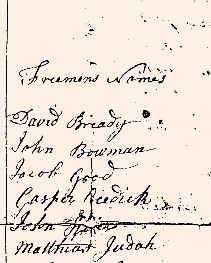 Freemens Names
David Bready
John Bowman
Jacob Good
Casper Reedick
John
Matthias Judah